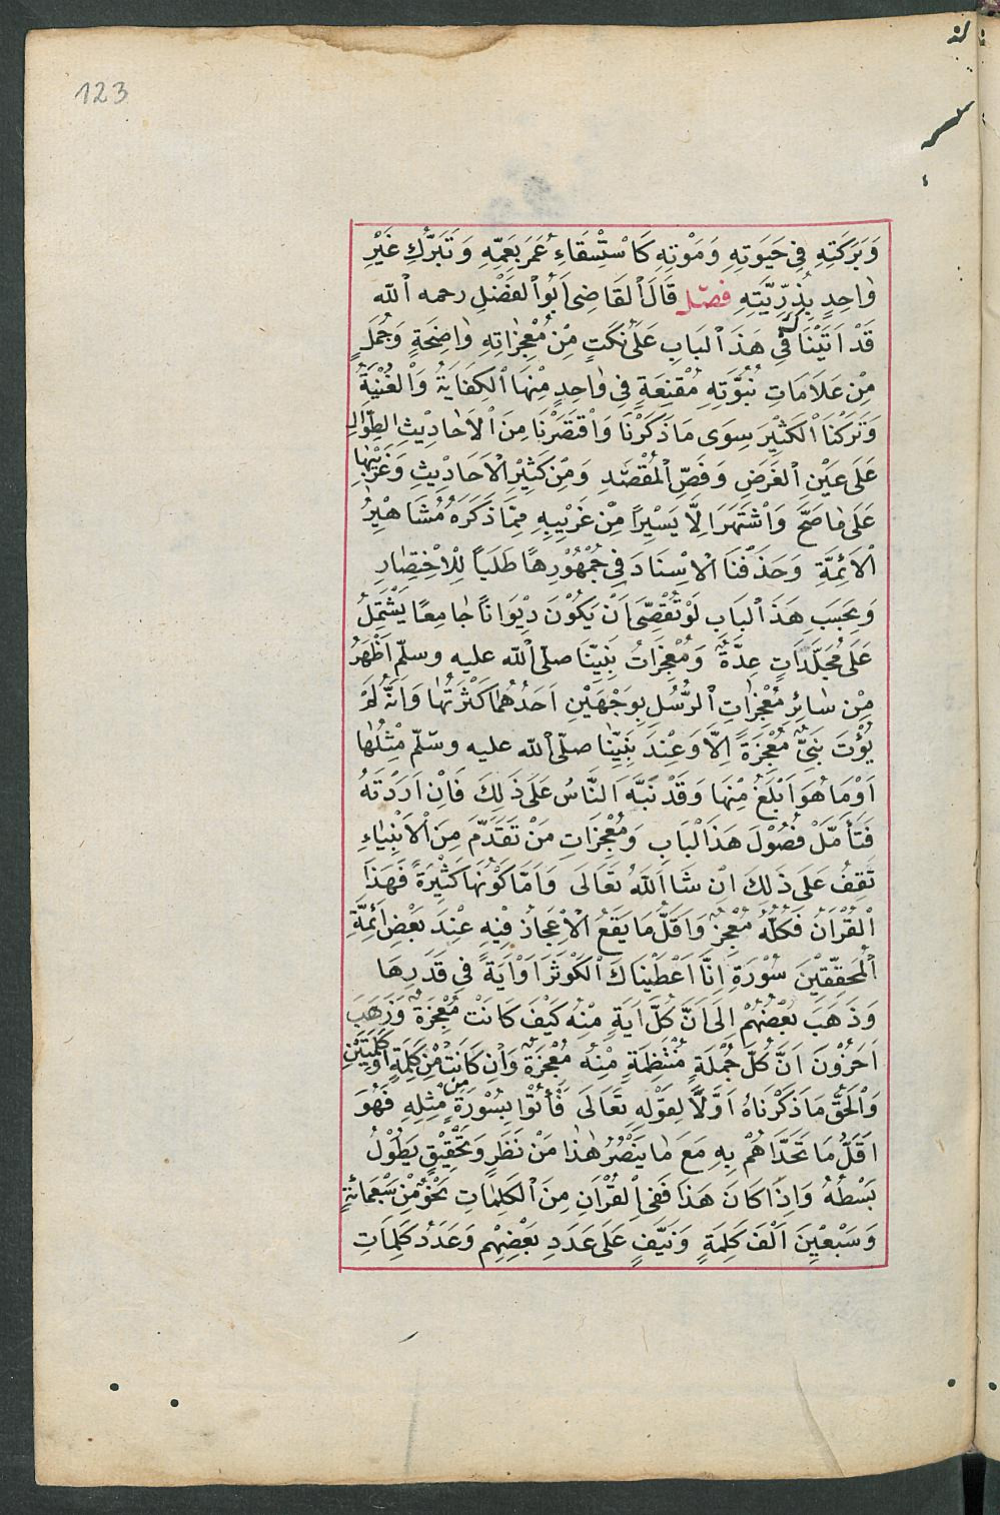 123
وَبَرَكَتِهِ فِي حَيَوتِهِ وَمَوْتِهِ كَاسْتِسْقَاءِ عُمَرَ بِعَمِّهِ وَتَبَرُّكِ غَيْرِ
وٰاحِدٍ بِذُرِّيَّتِهِ فصل قَالَ الْقَاضِي اَبُو الْفَضْلِ رحمه الله
قَدْ اَتَيْنَا فِي هَذَا الْبَابِ عَلَى نُكَتٍ مِنْ مُعْجِزٰاتِهِ وٰاضِحَةٍ وَجُمَلٍ
مِنْ عَلَامَاتِ نُبُوَّتِهِ مُقْنِعَةٍ فِي وٰاحِدٍ مِنْهَا الْكِفَايَةُ وَالْغُنْيَةُ
وَتَرَكْنَا الْكَثِيْرَ سِوَى مَا ذَكَرْنَا وَاقْتَصَرْنَا مِنَ الْاَحٰادِيْثِ الطِّوَالِ
عَلَى عَيْنِ الْغَرَضِ وَفَصِّ الْمَقْصَدِ وَمِنْ كَثِيْرِ الْاَحَادِيْثِ وَغَرِيْبِهٰا
عَلَى مٰا صَحَّ وَاشْتَهَرَ اِلَّا يَسِيْرًا مِنْ غَرِيْبِهِ مِمَّا ذَكَرَهُ مَشَاهِيْرُ
الْاَئِمَّةِ وَحَذَفْنَا الْاِسْنَادَ فِي جُمْهُوْرِهَا طَلَبًا لِلْاِخْتِصٰارِ
وَبِحَسَبِ هَذَا الْبَابِ لَوْ تُقُصِّىَ اَنْ يَكُوْنَ دِيْوَانًا جٰامِعًا يَشْتَمِلُ
عَلَى مُجَلَّدَاتٍ عِدَّةٍ وَمُعْجِزَاتُ نَبِيِّنَا صلى الله عليه وسلم اَظْهَرُ
مِنْ سٰائِرِ مُعْجِزٰاتِ الرُّسُلِ بِوَجْهَيْنِ اَحَدُهُمٰا كَثْرَتُهٰا وَاَنَّهُ لَمْ
يُؤْتَ نَبِيٌّ مُعْجِزَةً اِلَّا وَعِنْدَ نَبِيِّنٰا صلى الله عليه وسلم مِثْلُهٰا
اَوْ مَا هُوَ اَبْلَغُ مِنْهَا وَقَدْ نَبَّهَ النَّاسُ عَلَى ذَلِكَ فَاِنْ اَرَدْتَهُ
فَتَأَمَّلْ فُصُوْلَ هَذَا الْبَابِ وَمُعْجِزَاتِ مَنْ تَقَدَّمَ مِنَ الْاَنْبِيٰاءِ
تَقِفُ عَلَى ذَلِكَ اِنْ شَا اللّٰهُ تَعَالَى وَاَمَّا كَوْنُهَا كَثِيْرَةً فَهَذَا
الْقُرْاٰنُ فَكُلُّهُ مُعْجِزٌ وَاَقَلُّ مَا يَقَعُ الْاِعْجَازُ فِيْهِ عِنْدَ بَعْضِ اَئِمَّةِ
الْمُحَقِّقِيْنَ سُوْرَةُ اِنَّا اَعْطَيْنَاكَ الْكَوْثَرَ اَوْ اٰيَةً فِي قَدْرِهَا
وَذَهَبَ بَعْضُهُمْ اِلَى اَنَّ كُلَّ اٰيَةٍ مِنْهُ كَيْفَ كَانَتْ مُعْجِزَةٌ وَزَهَبَ
اٰخَرُوْنَ اَنَّ كُلَّ جُمْلَةٍ مُنْتَظِمَةٍ مِنْهُ مُعْجِزَةٌ وَاِنْ كَانَتْ مِنْ كَلِمَةٍ اَوْ كَلِمَتَيْنِ
وَالْحَقُّ مَا ذَكَرْنَاهُ اَوَّلًا لِقَوْلِهِ تَعَالَى فَأْتُوْا بِسُوْرَةٍ مِنْ مِثْلِهِ فَهُوَ
اَقَلُّ مَا تَحَدَّاهُمْ بِهِ مَعَ مٰا يَنْصُرُ هٰذٰا مِنْ نَظَرٍ وَتَحْقِيْقٍ يَطُوْلُ
بَسْطُهُ وَاِذَا كَانَ هَذَا فَفِي الْقُرْاٰنِ مِنَ الْكَلِمٰاتِ نَحْوٌ مِنْ سَبْعِمِائَةٍ
وَسَبْعِيْنَ اَلْفَ كَلِمَةٍ وَنَيِّفٍ عَلَى عَدَدِ بَعْضِهِمْ وَعَدَدُ كَلِمَاتِ